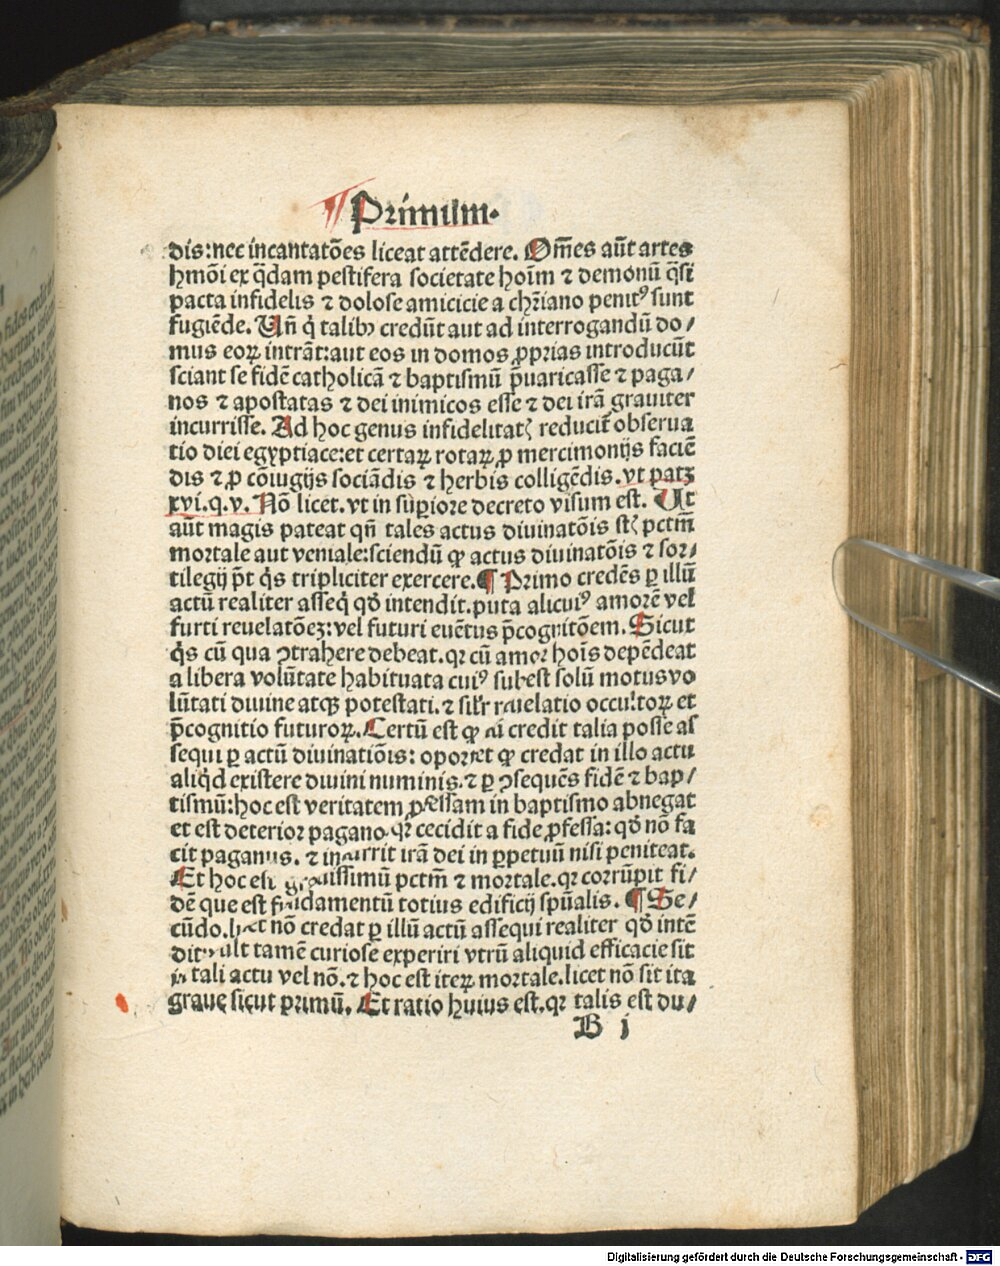 Primum.
dis:nec incantatōes liceat attēdere. Om̄es aūt artes
hmōi ex q̄dam pestifera societate hoīm ⁊ demonū q̄si
pacta infidelis ⁊ dolose amicicie a chr̄iano penitꝰ sunt
fugiēde. Un̄ q̇ talibꝫ credūt aut ad interrogandū do/
mus eoꝝ intrāt:aut eos in domos ꝓprias introducūt
sciant se fidē catholicā ⁊ baptismū p̄uaricasse ⁊ paga/
nos ⁊ apostatas ⁊ dei inimicos esse ⁊ dei irā grauiter
incurrisse. Ad hoc genus infidelitatꝭ reducit̄ obserua
tio diei egyptiace:et certaꝝ rotaꝝ,ꝑ mercimonijs faciē
dis ⁊ ꝓ cōiugijs sociādis ⁊ herbis colligēdis. vt patꝫ
xvi.q.v. Nō licet. vt in sup̄iore decreto visum est. Ut
aūt magis pateat qn̄ tales actus diuinatōis sꝭ pctm̄
mortale aut veniale:sciendū ꝙ actus diuinatōis ⁊ sor/
tilegij p̄t q̇s tripliciter exercere.¶ Primo credēs ꝑ illū
actū realiter asseq̇ qđ intendit.puta alicuiꝰ amorē vel
furti reuelatōeꝫ:vel futuri euētus p̄cognitōem. Sicut
q̇s cū qua ꝯtrahere debeat.qꝛ cū amor hoīs depēdeat
a libera volūtate habituata cuiꝰ subest solū motus vo
lūtati diuine atqꝫ potestati.⁊ sil̄r reuelatio occultoꝝ et
p̄cognitio futuroꝝ. Certū est ꝙ qui credit talia posse as
sequi ꝑ actū diuinatiōis: oportet ꝙ credat in illo actu
aliq̇d existere diuini numinis.⁊ ꝑ ꝯsequēs fidē ⁊ bap/
tismū:hoc est veritatem ꝓfessam in baptismo abnegat
et est deterior pagano.qꝛ cecidit a fide ꝓfessa:qđ nō fa
cit paganus. ⁊ incurrit irā dei in ꝑpetuū nisi peniteat.
Et hoc est grauissimū pctm̄ ⁊ mortale.qꝛ corrūpit fi/
dē que est fundamentū totius edificij spūalis. ¶ Se/
cūdo.licet nō credat ꝑ illū actū assequi realiter qđ intē
dit vult tamē curiose experiri vtrū aliquid efficacie sit
in tali actu vel nō.⁊ hoc est iteꝝ mortale.licet nō sit ita
graue sicut primū. Et ratio huius est.qꝛ talis est du/
B j
Digitalisierung gefördert durch die Deutsche Forschungsgemeinschaft - DFG